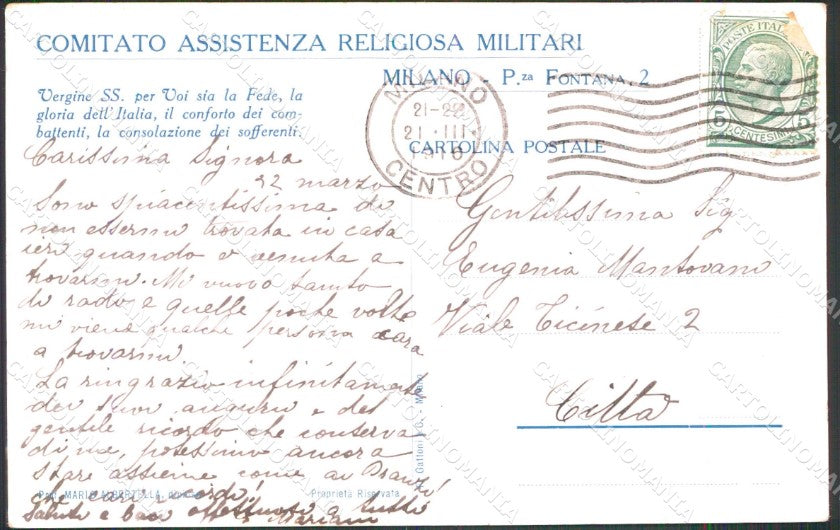 COMITATO ASSISTENZA RELIGIOSA MILITARI
MILANO - P.za FONTANA, 2
Vergine SS. per Voi sia la Fede, la
gloria dell'Italia, il conforto dei com-
battenti, la consolazione dei sofferenti.
POSTE ITAL
5 CENTESIMI 5
MILANO
21-22
21 III
CENTRO
CARTOLINA POSTALE
Carissima Signora
22 marzo
Sono spiacentissima di
non essermi trovata in casa
ieri quando è venuta a
trovarmi. Mi muovo tanto
di rado e quelle poche volte
mi viene qualche persona cara
a trovarmi
La ringrazio infinitamente
dei suoi auguri e del
gentile ricordo che conserva
di me, potessimo ancora
stare assieme come ai
che cari ricordi!
Saluti e baci affettuosi a tutti
Mariani
Gentilissima Sig
Eugenia Mantovani
Viale Ticinese 2
Città
Gattoni & C. - Milano
Prop. MARIO ALBERTELLA,
Proprietà Riservata
CARTOLINOMANIA